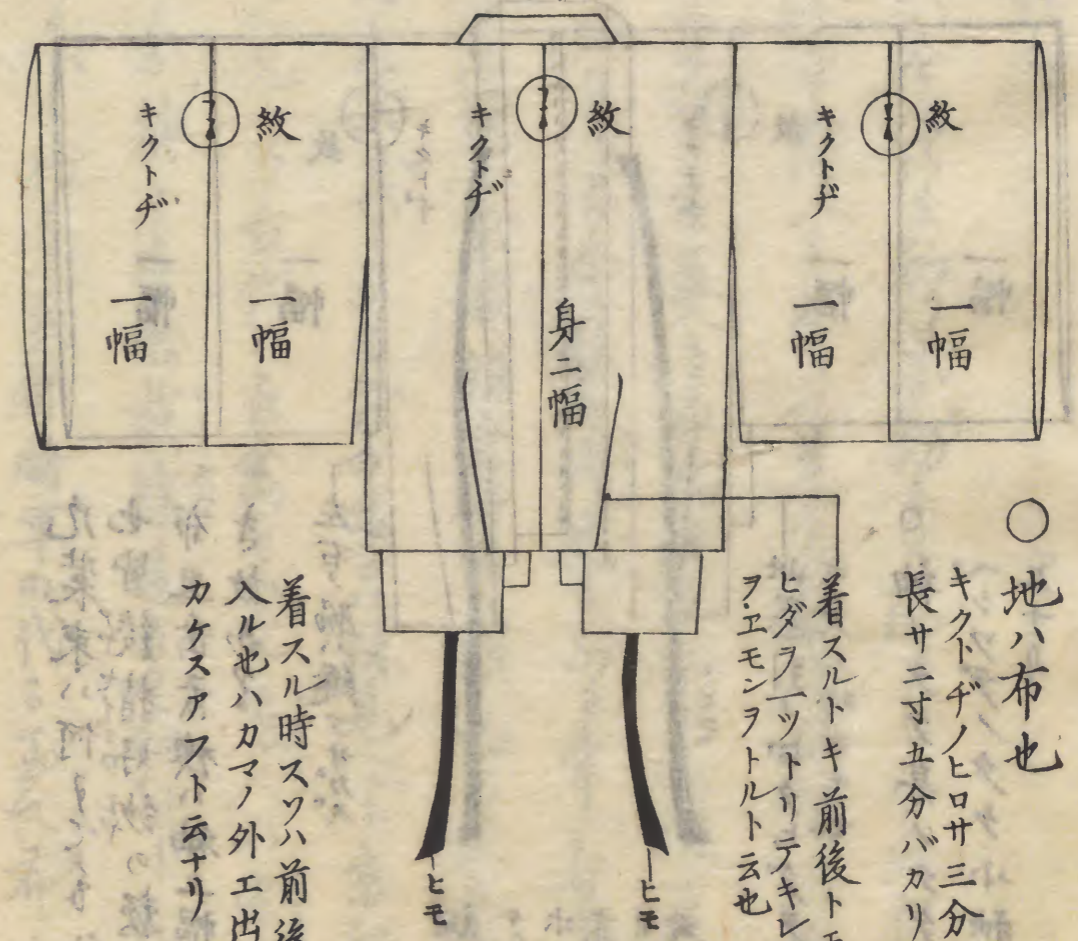 紋
キクトヂ
一幅
一幅
紋
キクトヂ
身二幅
紋
キクトヂ
一幅
一幅
○地ハ布也
キクトヂノヒロサ三分
長サ二寸五分バカリ
着スルトキ前後ト
ヒダヲ一ツトリテキレ
ヲエモンヲトルト云也
ヒモ
ヒモ
着スル時スソハ前後
入ル也ハカマノ外エ出
カケスアフト云ナリ